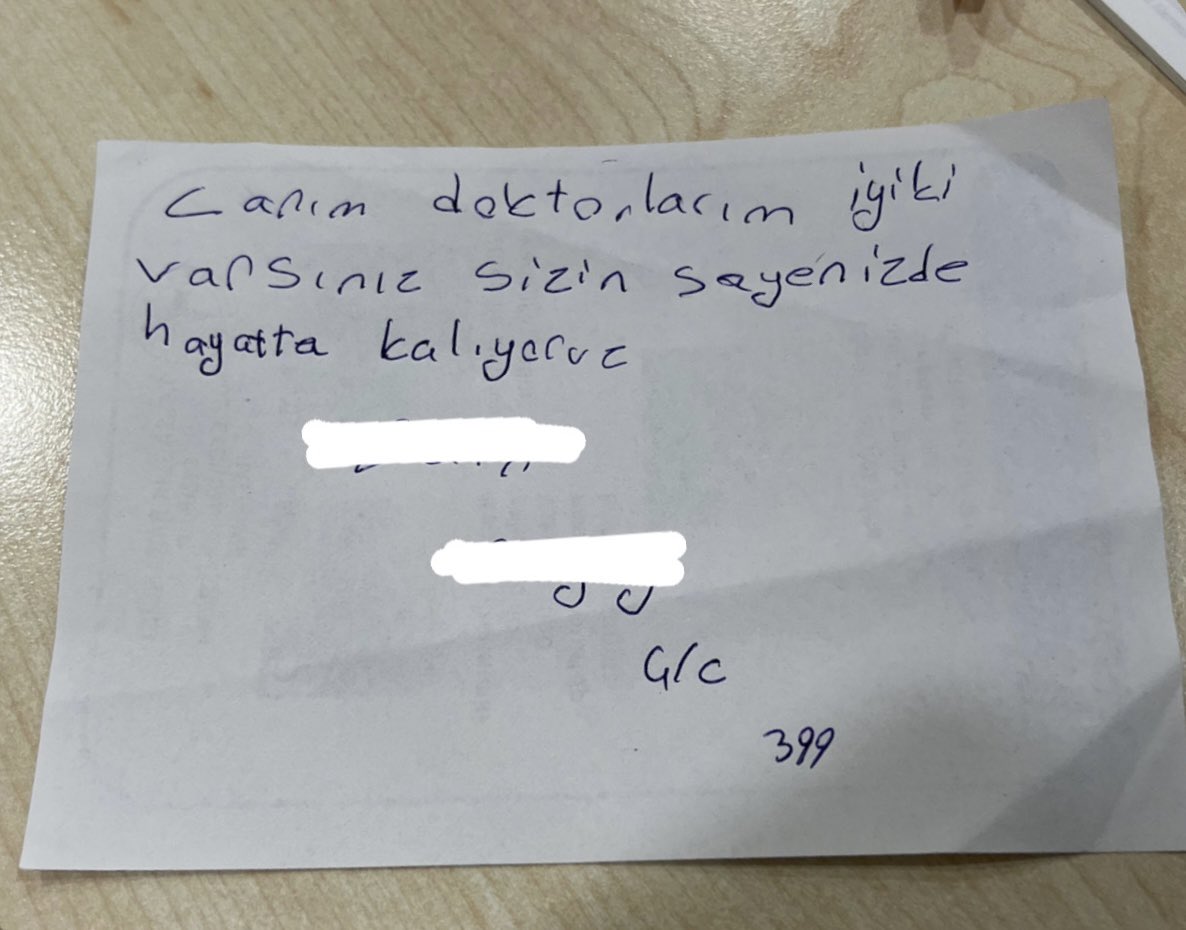 Canım doktorlarım iyiki
varsınız sizin sayenizde
hayatta kalıyoruz
4/C
399